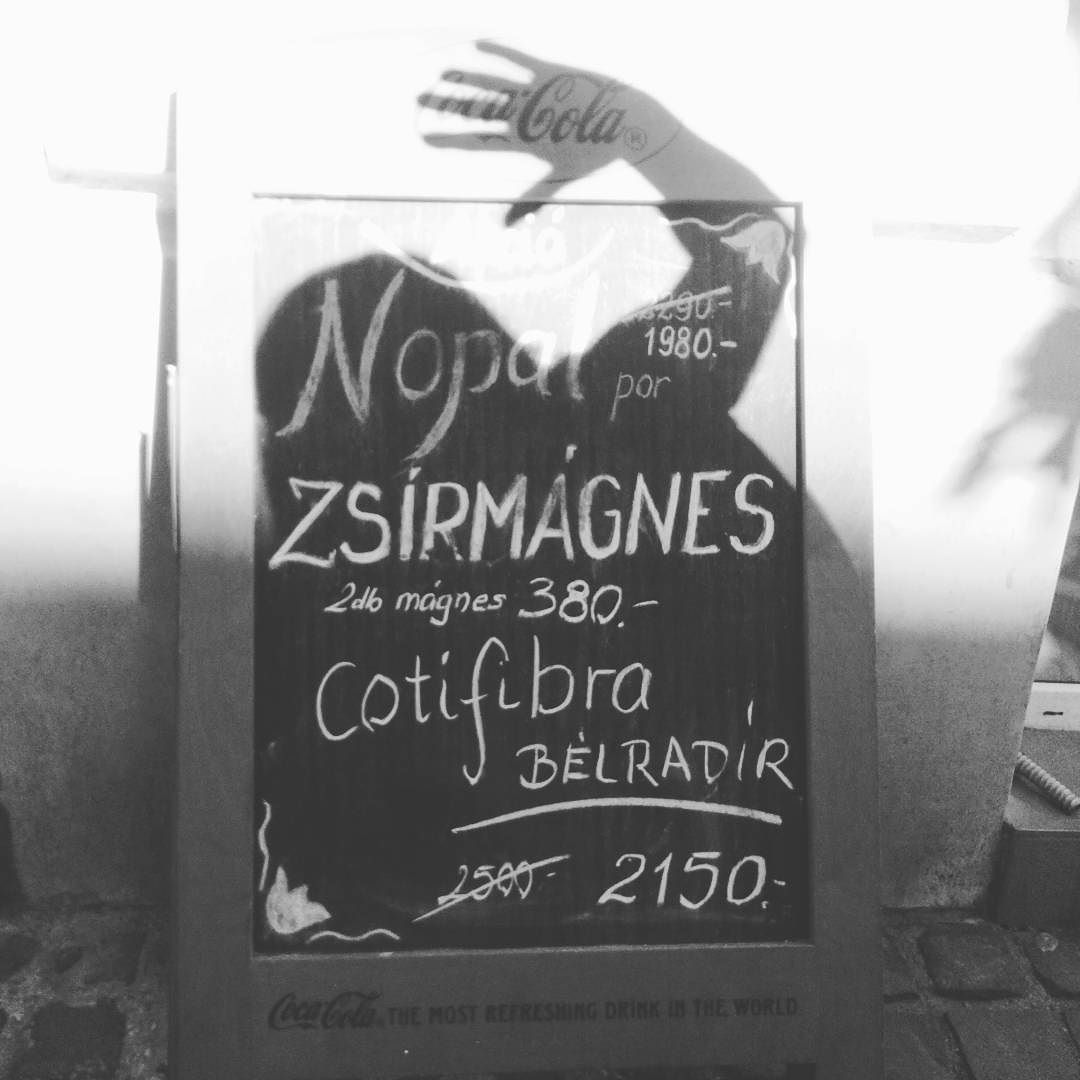 Coca-Cola
Nopal
1980.-
por
ZSÍRMÁGNES
2db mágnes 380.-
Cotifibra
BÉLRADÍR
2500.- 2150.-
Coca-Cola THE MOST REFRESHING DRINK IN THE WORLD